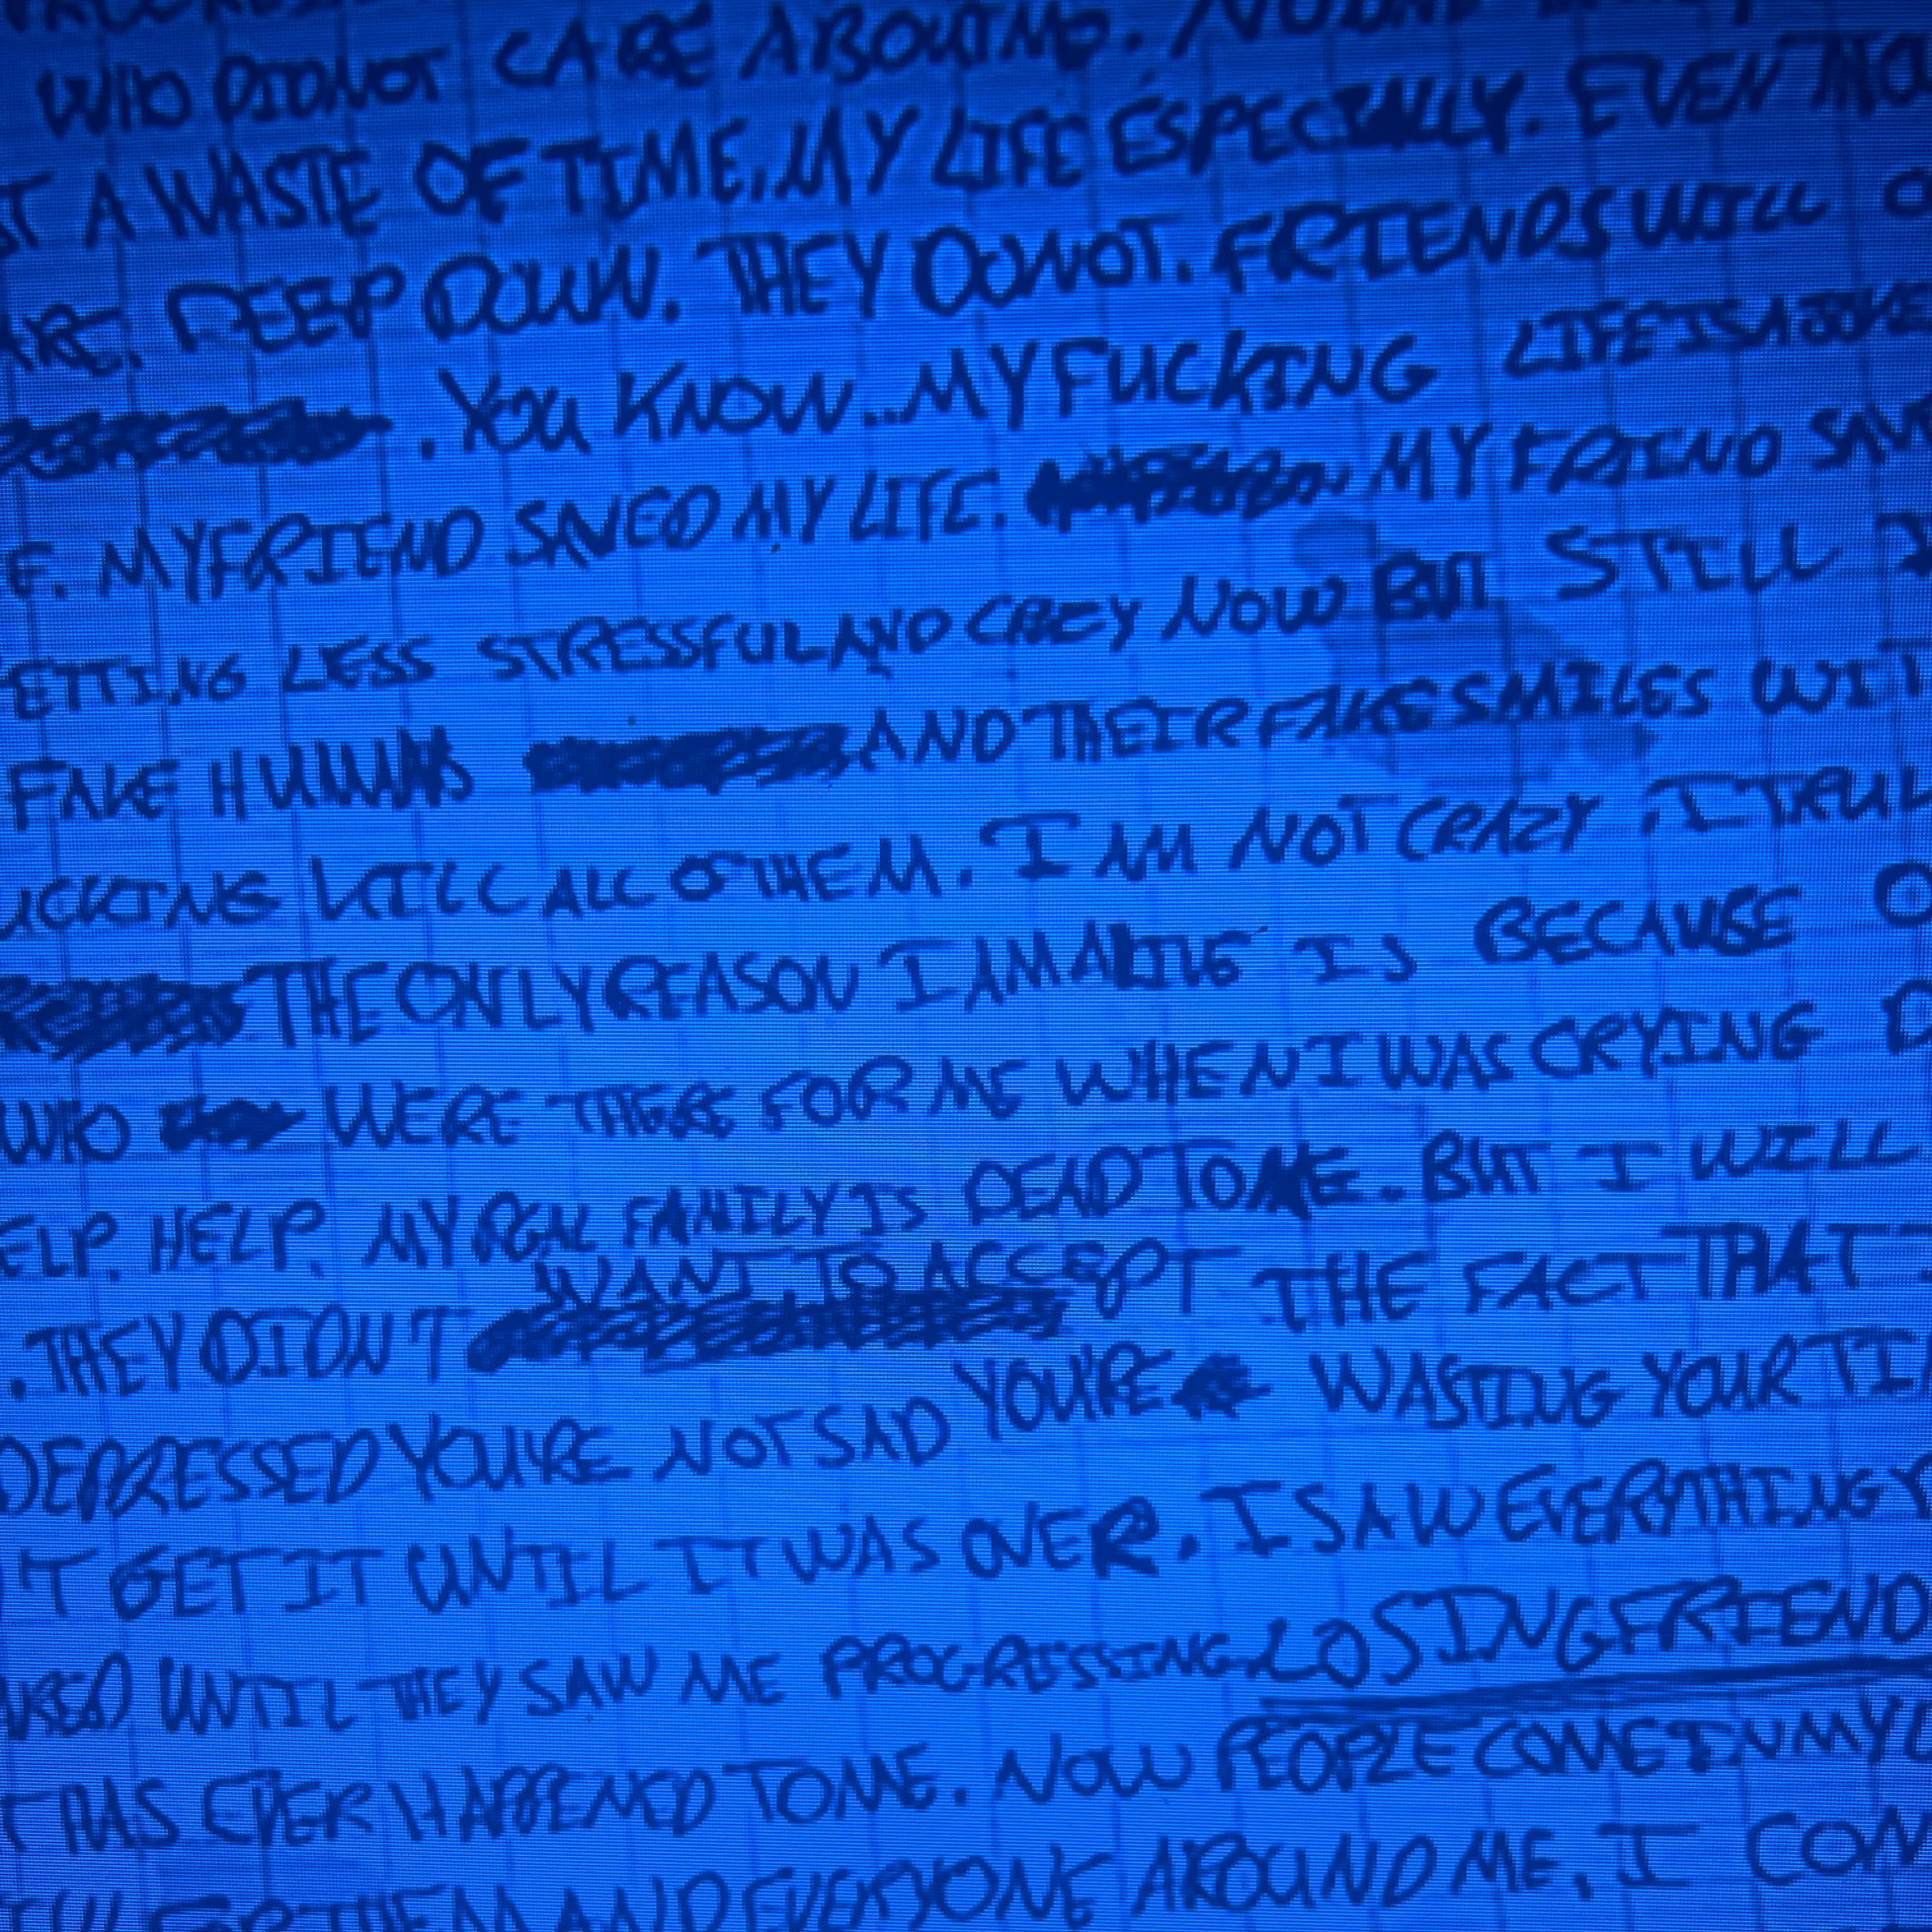 WHO DIDNOT CARE ABOUTME.
T A WASTE OF TIME. MY LIFE ESPECIALLY. EVEN
DEEP DOWN. THEY DONOT. FRIENDS WILL
. YOU KNOW... MY FUCKING LIFE IS A JOKE
E. MY FRIEND SAVED MY LIFE. MY FRIEND
ETTING LESS STRESSFUL AND CRZEY NOW BUT STILL I
FAKE HUMANS AND THEIR FAKE SMILES WIT
UCKING KILL ALL OF THEM. I AM NOT CRAZY. I TRUL
THE ONLY REASON I AM ALIVE IS BECAUSE O
WHO WERE THERE FOR ME WHEN I WAS CRYING
ELP. HELP. MY REAL FAMILY IS DEAD TO ME. BUT I WILL
. THEY DIDN'T WANT TO ACCEPT THE FACT THAT
DEPRESSED YOU'RE NOT SAD YOU'RE WASTING YOUR TI
'T GET IT UNTIL IT WAS OVER. I SAW EVERYTHING
UNTIL THEY SAW ME PROGRESSING LOSING FRIEND
T THIS EVER HAPPENED TO ME. NOW PEOPLE COME IN MY
THEM AND EVERYONE AROUND ME. I CON